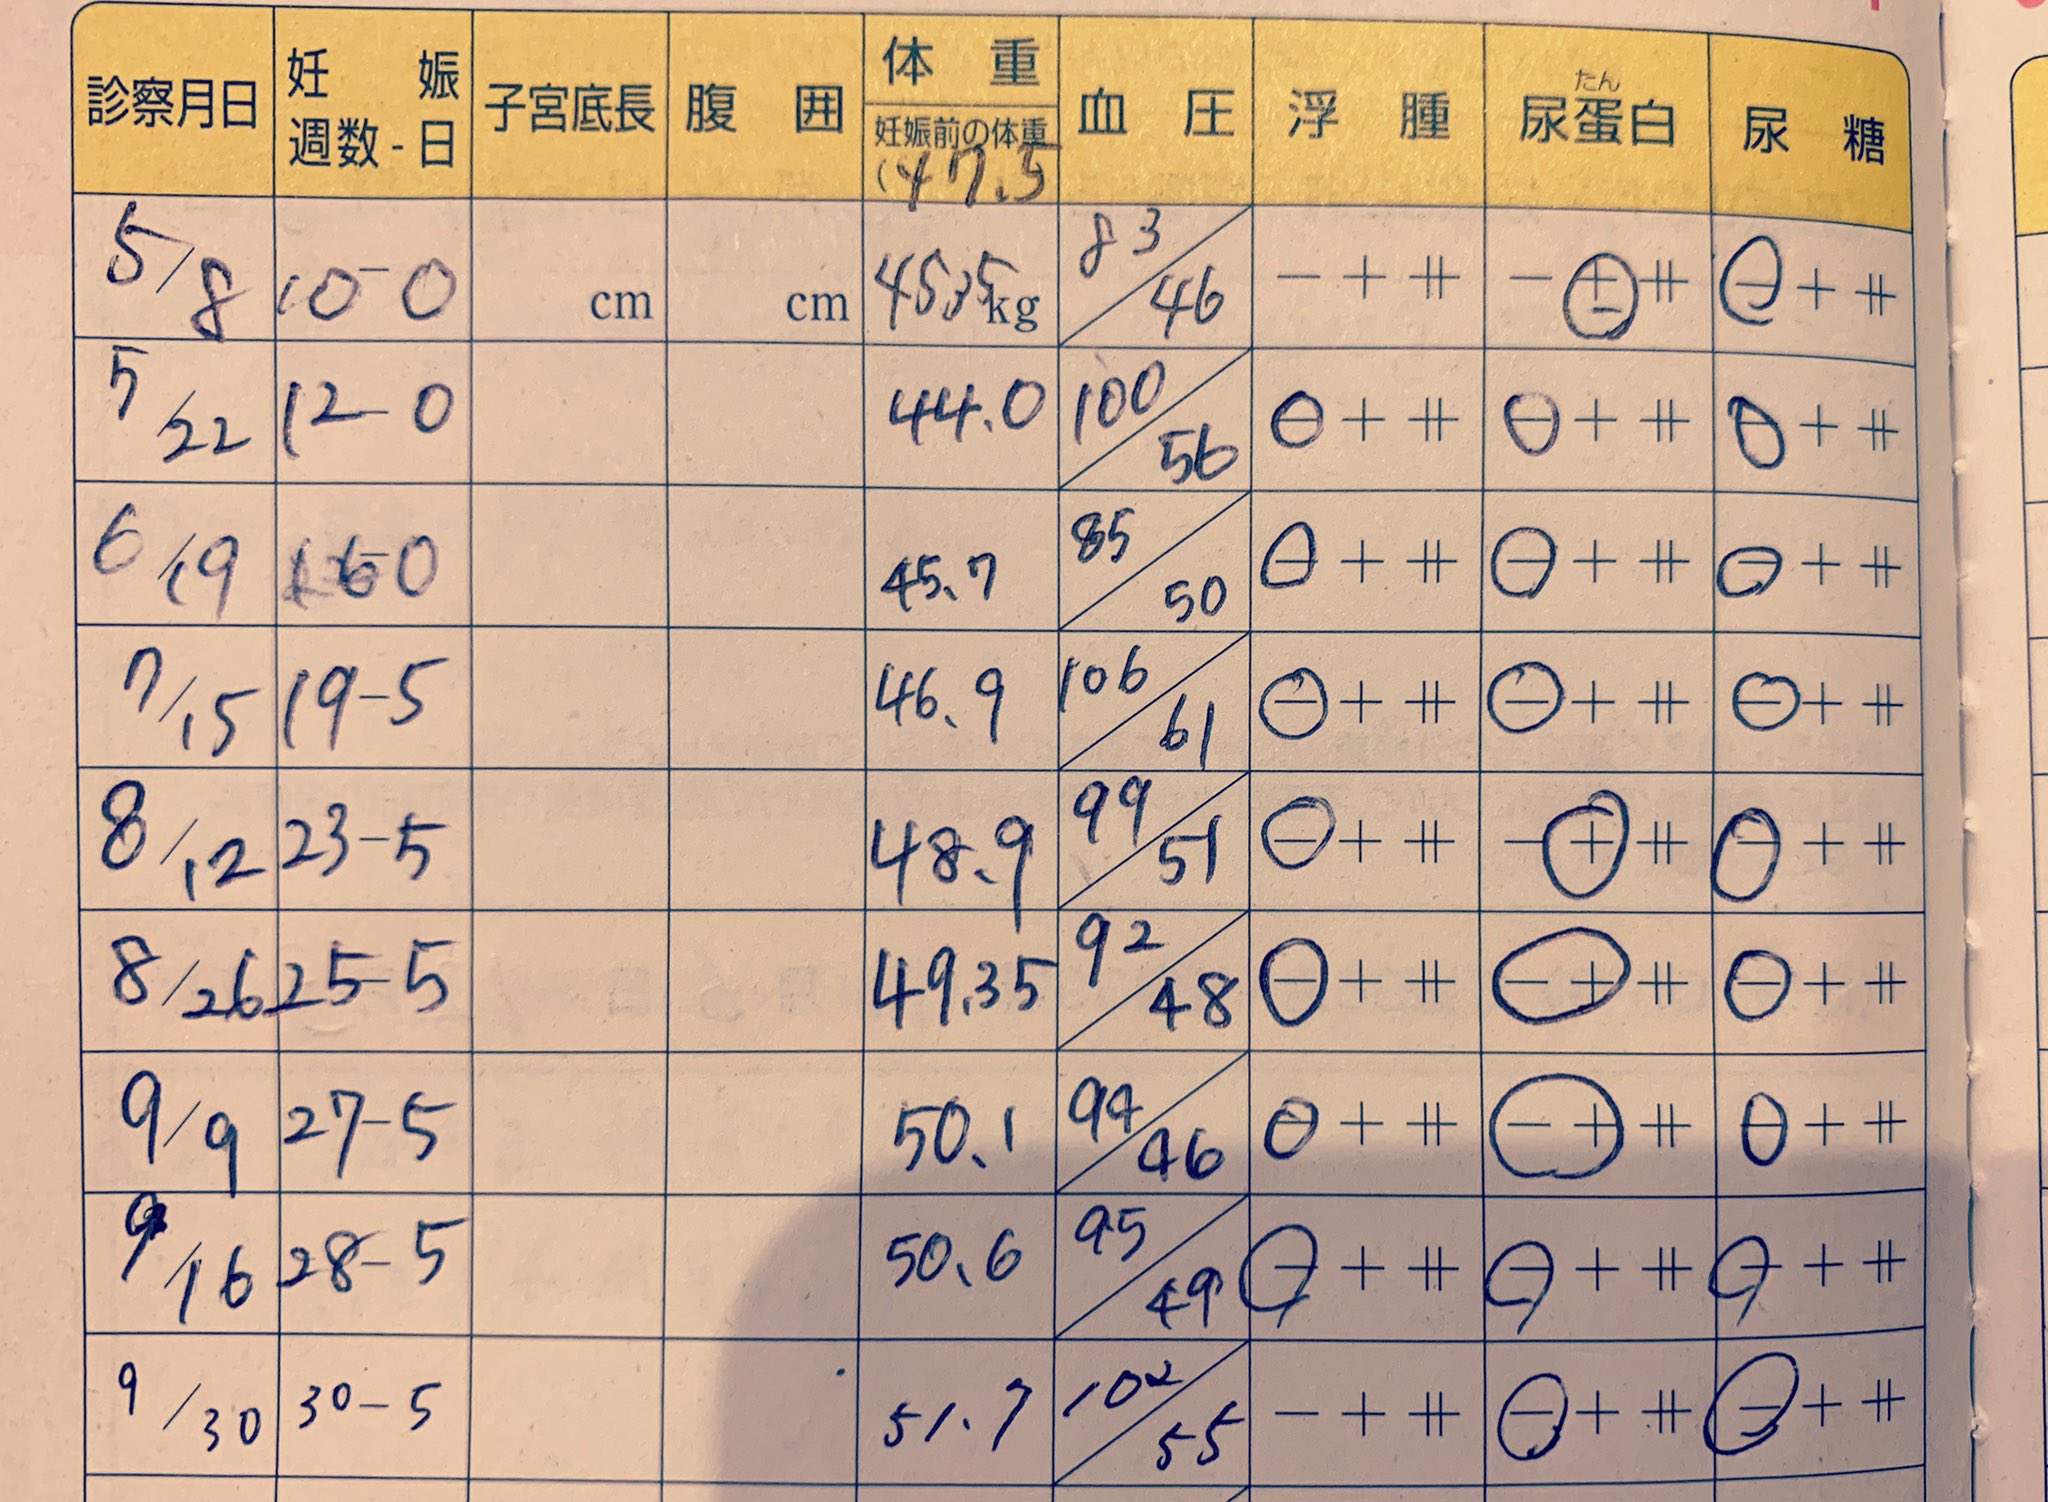 診察月日 妊娠週数-日 子宮底長 腹囲 体重 妊娠前の体重 (47.5 血圧 浮腫 尿蛋白 たん 尿糖
5/8 10-0 cm cm 45.35kg 83/46 - + ++ - + ++ - + ++
5/22 12-0 44.0 100/56 - + ++ - + ++ - + ++
6/19 16-0 45.7 85/50 - + ++ - + ++ - + ++
7/15 19-5 46.9 106/61 - + ++ - + ++ - + ++
8/12 23-5 48.9 99/51 - + ++ - + ++ - + ++
8/26 25-5 49.35 92/48 - + ++ - + ++ - + ++
9/9 27-5 50.1 94/46 - + ++ - + ++ - + ++
9/16 28-5 50.6 95/49 - + ++ - + ++ - + ++
9/30 30-5 51.7 102/55 - + ++ - + ++ - + ++